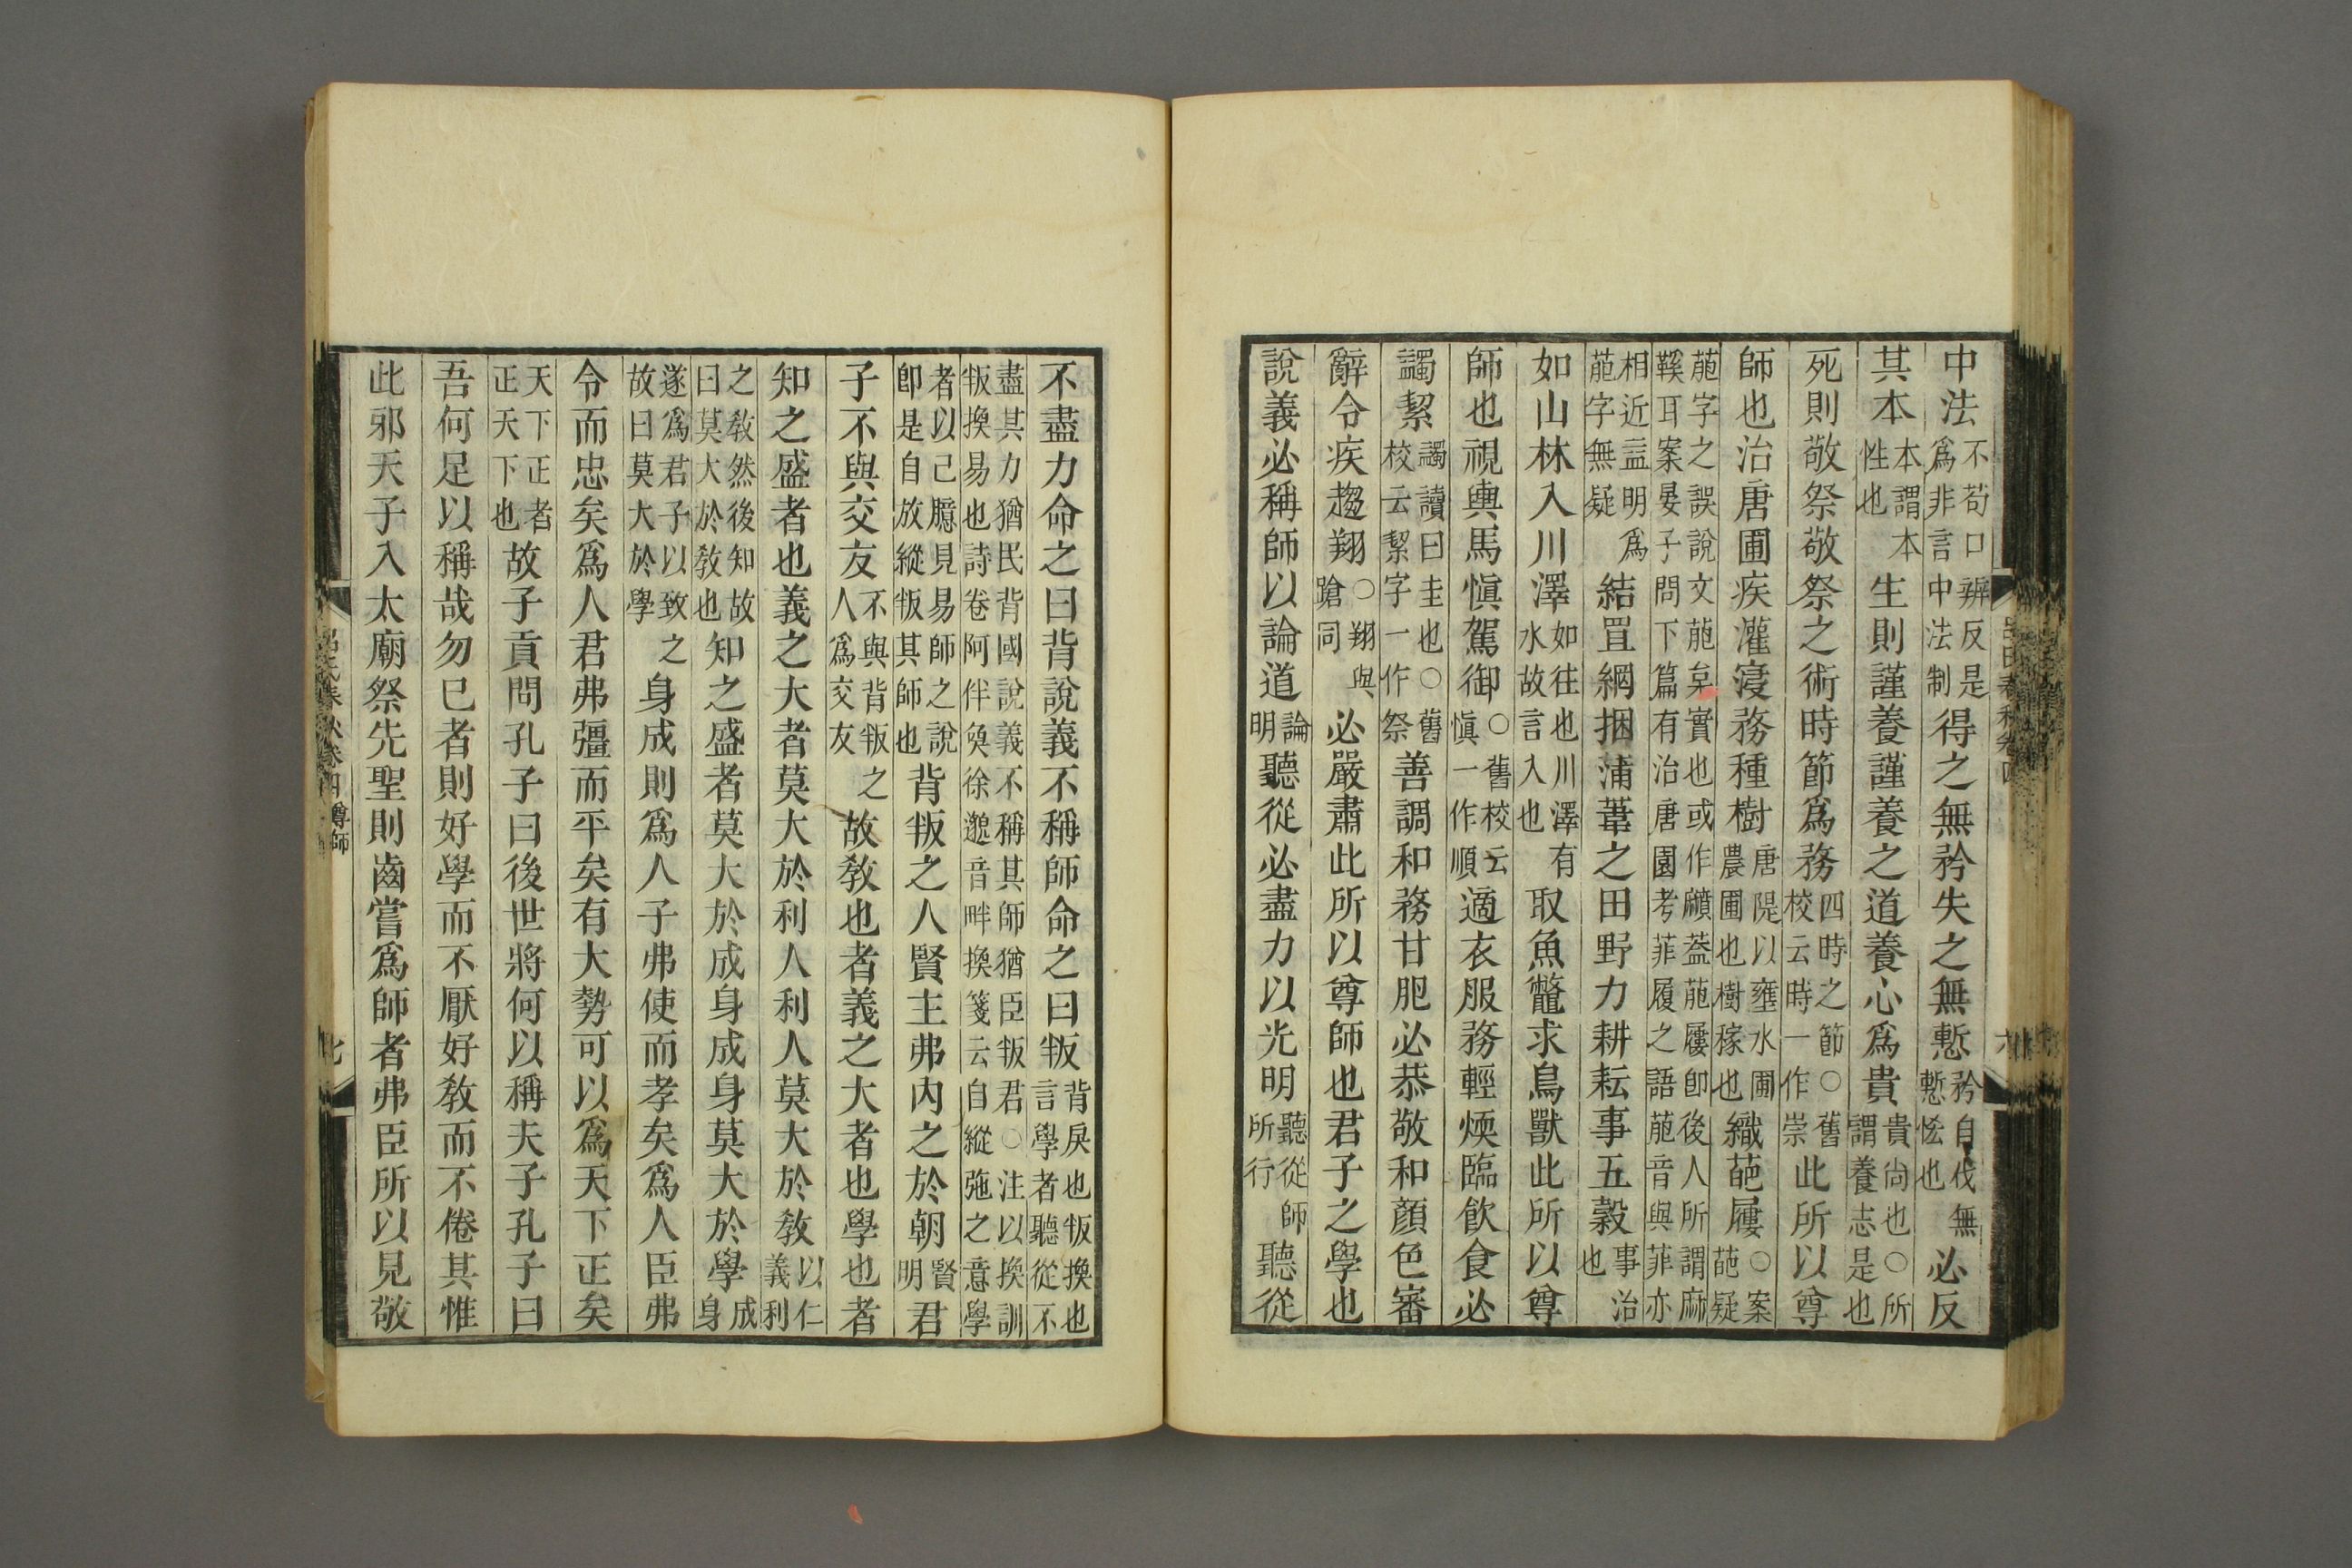 中法不苟口辨反是爲非言中法制得之無矜失之無慙矜自伐無慙恡也必反
其本本謂本性也生則謹養謹養之道養心爲貴貴尚也○所謂養志是也
死則敬祭敬祭之術時節爲務四時之節○舊校云時一作崇此所以尊
師也治唐圃疾灌寖務種樹唐隄以壅水圃農圃也樹稼也織葩屨○案葩疑
萉字之誤說文萉枲實也或作黂葢萉屨卽後人所謂麻鞵耳案晏子問下篇有治唐園考菲履之語萉音與菲亦
相近益明爲萉字無疑結罝網捆蒲葦之田野力耕耘事五穀事治也
如山林入川澤如往也川澤有水故言入也取魚鼈求鳥獸此所以尊
師也視輿馬愼駕御○舊校云愼一作順適衣服務輕煗臨飮食必
蠲絜蠲讀曰圭也○舊校云絜字一作祭善調和務甘肥必恭敬和顏色審
辭令疾趨翔○翔與蹌同必嚴肅此所以尊師也君子之學也
說義必稱師以論道論明聽從必盡力以光明聽從師所行聽從
不盡力命之曰背說義不稱師命之曰叛背戾也叛換也言學者聽從不
盡其力猶民背國說義不稱其師猶臣叛君○注以換訓叛換易也詩卷阿伴奐徐邈音畔換箋云自縱弛之意學
者以己臆見易師之說卽是自放縱叛其師也背叛之人賢主弗內之於朝賢明君
子不與交友不與背叛之人爲交友故敎也者義之大者也學也者
知之盛者也義之大者莫大於利人利人莫大於敎以仁義利
之敎然後知故曰莫大於敎也知之盛者莫大於成身成身莫大於學成身
遂爲君子以致之故曰莫大於學身成則爲人子弗使而孝矣爲人臣弗
令而忠矣爲人君弗彊而平矣有大勢可以爲天下正矣
天下正者正天下也故子貢問孔子曰後世將何以稱夫子孔子曰
吾何足以稱哉勿巳者則好學而不厭好敎而不倦其惟
此邪天子入太廟祭先聖則齒嘗爲師者弗臣所以見敬
呂氏春秋卷四 尊師
七